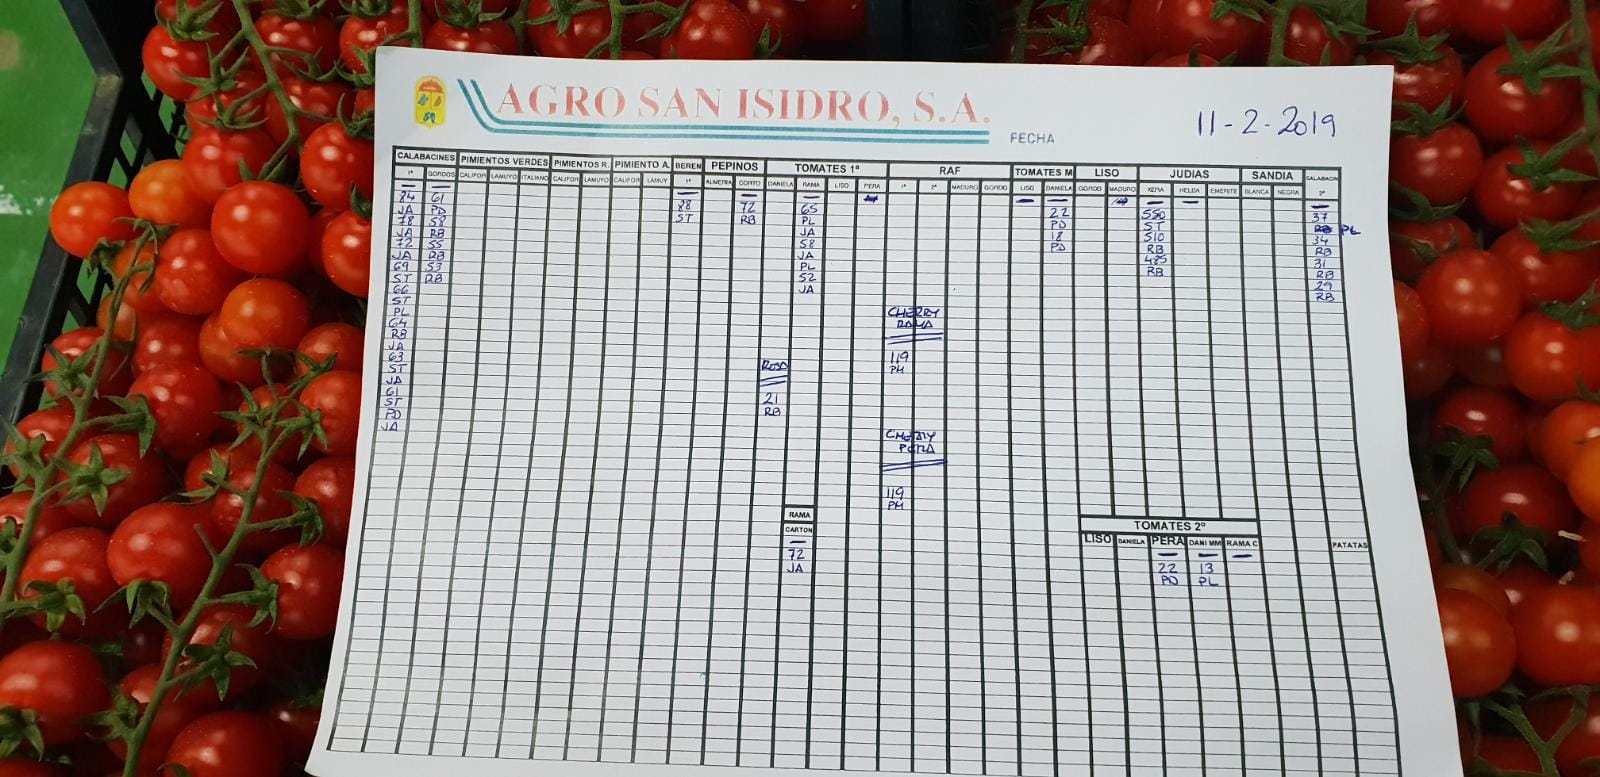 AGRO SAN ISIDRO, S.A.
FECHA 11-2-2019
CALABACINES PIMIENTOS VERDES PIMIENTOS R. PIMIENTO A. BEREN PEPINOS TOMATES 1ª RAF TOMATES M LISO JUDIAS SANDIA CALABACIN
1ª GORDOS CALIFOR LAMUYO ITALIANO CALIFOR LAMUYO CALIFOR LAMUY 1ª ALMERIA CORTO DANIELA RAMA LISO PERA 1ª 2ª MADURO GORDO LISO DANIELA GORDO MADURO XERA HELDA EMERITE BLANCA NEGRA 2ª
84 61 88 72 65 22 550 37
JA PD ST RB PL PD ST RB PL
78 58 JA 18 510 34
JA RB 58 PD RB RB
72 55 JA 485 31
JA RB PL RB RB
69 53 52 29
ST RB JA RB
66
ST
PL
64
RB
JA
63
ST
JA
61
ST
PD
JA
CHERRY
RAMA
119
PM
ROSA
21
RB
CHERRY
PERA
119
PM
RAMA
CARTON
72
JA
TOMATES 2ª
LISO DANIELA PERA DANI MM RAMA C PATATAS
22 13
PD PL